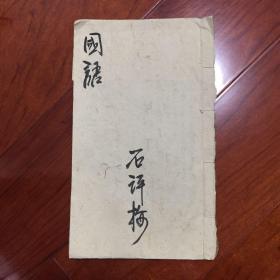 國語
石評梅